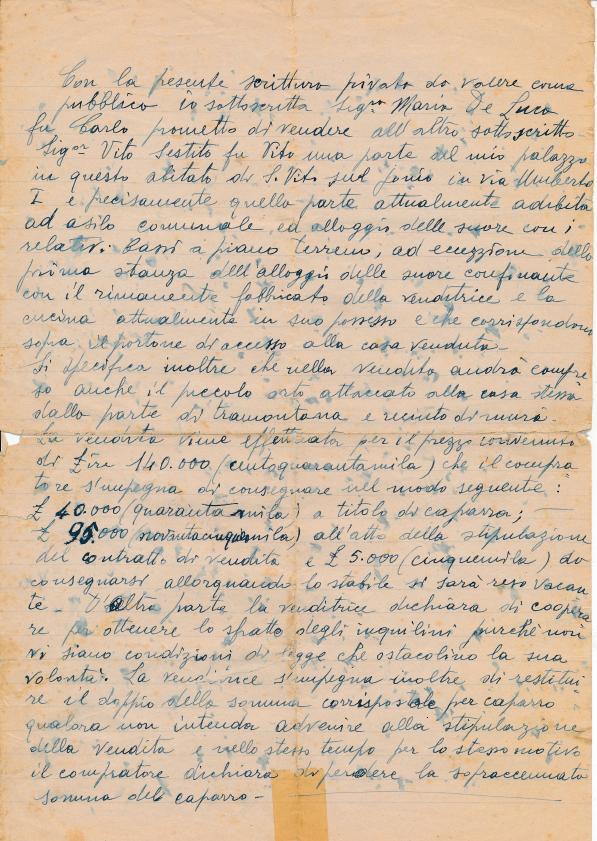 Con la presente scrittura privata da valere come
pubblica io sottoscritta Sig.ra Maria De Luca
fu Carlo prometto di vendere all'altro sottoscritto
Sig.or Vito Sestito fu Vito una parte del mio palazzo
in questo abitato di S. Vito sul Jonio in via Umberto
I e precisamente quella parte attualmente adibita
ad asilo comunale ed alloggio delle suore con i
relativi bassi a piano terreno, ad eccezzione della
prima stanza dell'alloggio delle suore confinante
con il rimanente fabbricato della venditrice e la
cucina attualmente in suo possesso e che corrispondono
sopra il portone di accesso alla casa venduta.
Si specifica inoltre che nella vendita andrà compre
so anche il piccolo orto attaccato alla casa stessa
dalla parte di tramontana e recinto di mura.
La vendita viene effettuata per il prezzo convenuto
di £ire 140.000 (centoquarantamila) che il compra
tore s'impegna di consegnare nel modo seguente:
£ 40.000 (quarantamila) a titolo di caparra;
£ 95.000 (novantacinquemila) all'atto della stipulazione
del contratto di vendita e £ 5.000 (cinquemila) da
consegnarsi allorquando lo stabile si sarà reso vacan
te - D'altra parte la venditrice dichiara di coopera
re per ottenere lo sfratto degli inquilini purchè non
vi siano condizioni di legge che ostacolino la sua
volontà. La venditrice s'impegna inoltre di restitui
re il doppio della somma corrispostale per caparra
qualora non intenda advenire alla stipulazione
della vendita e nello stesso tempo per lo stesso motivo
il compratore dichiara di perdere la sopraccennata
somma del caparro -